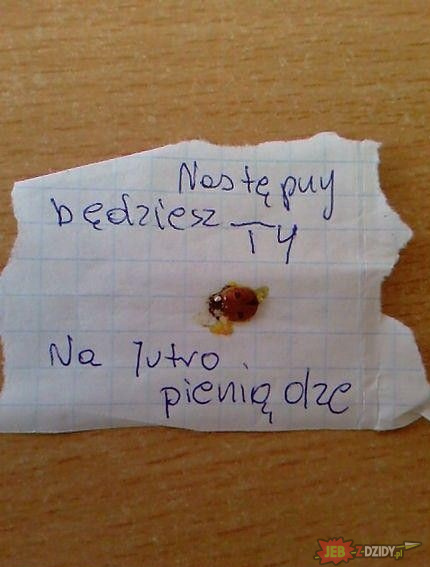 Następny
będziesz TY
Na jutro
pieniądze
JEB-Z-DZIDY.pl